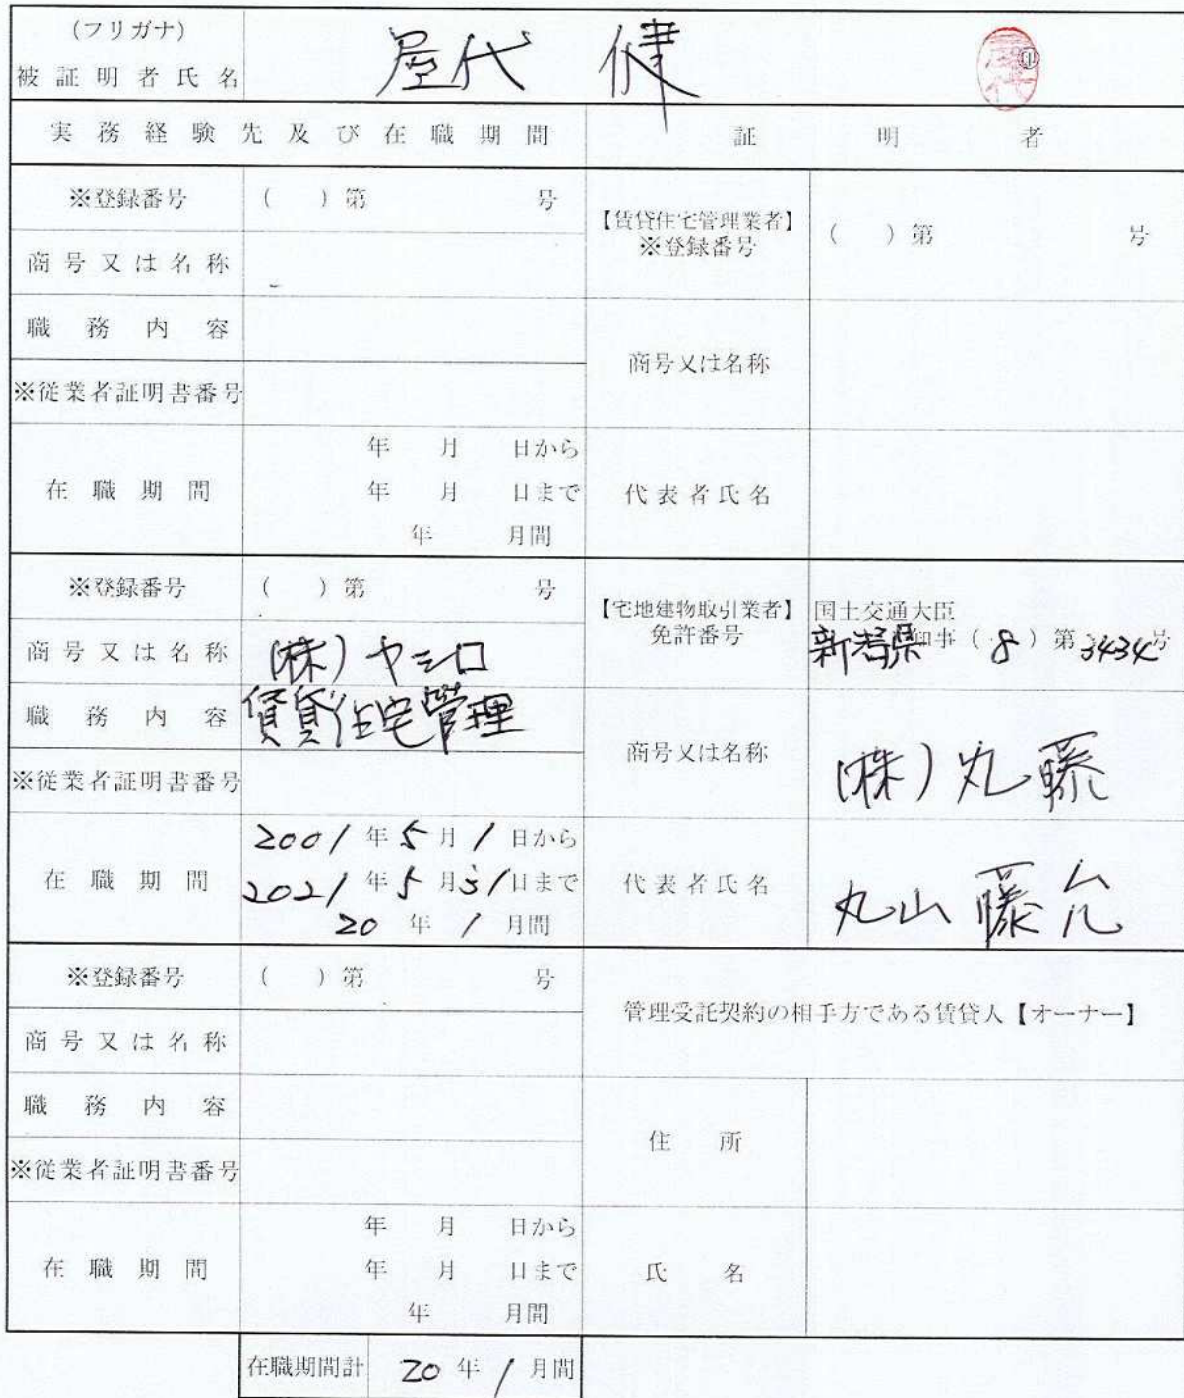 (フリガナ)
被証明者氏名 屋代 健 ㊞
屋代
実務経験先及び在職期間 証明者
※登録番号 ( ) 第 号
商号又は名称
職務内容
※従業者証明書番号
在職期間
年 月 日から
年 月 日まで
年 月間
【賃貸住宅管理業者】
※登録番号
( ) 第 号
商号又は名称
代表者氏名
※登録番号 ( ) 第 号
商号又は名称 (株)ヤシロ
職務内容 賃貸住宅管理
※従業者証明書番号
在職期間
2001年5月1日から
2021年5月31日まで
20年1月間
【宅地建物取引業者】
免許番号
国土交通大臣
新潟県知事 (8) 第3434号
商号又は名称 (株)丸藤
代表者氏名 丸山藤允
※登録番号 ( ) 第 号
商号又は名称
職務内容
※従業者証明書番号
在職期間
年 月 日から
年 月 日まで
年 月間
管理受託契約の相手方である賃貸人【オーナー】
住所
氏名
在職期間計 20年1月間